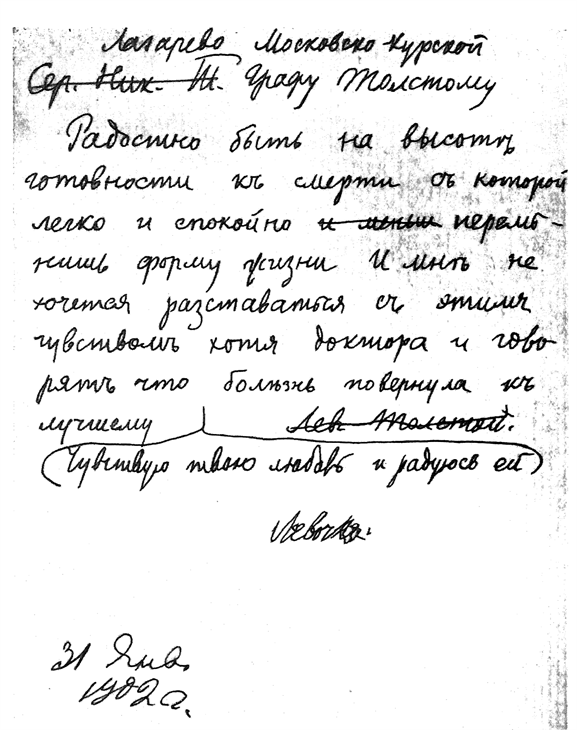 Лазарево Московско-Курской
Сер. Ник. Т. Графу Толстому
Радостно быть на высотѣ
готовности къ смерти съ которой
легко и спокойно и меньш перемѣ-
нишь форму жизни И мнѣ не
хочется разставаться съ этимъ
чувствомъ хотя доктора и гово-
рятъ что болѣзнь повернула къ
лучшему Лев Толстой.
(Чувствую твою любовь и радуюсь ей)
Левочка.
31 Янв.
1902 г.